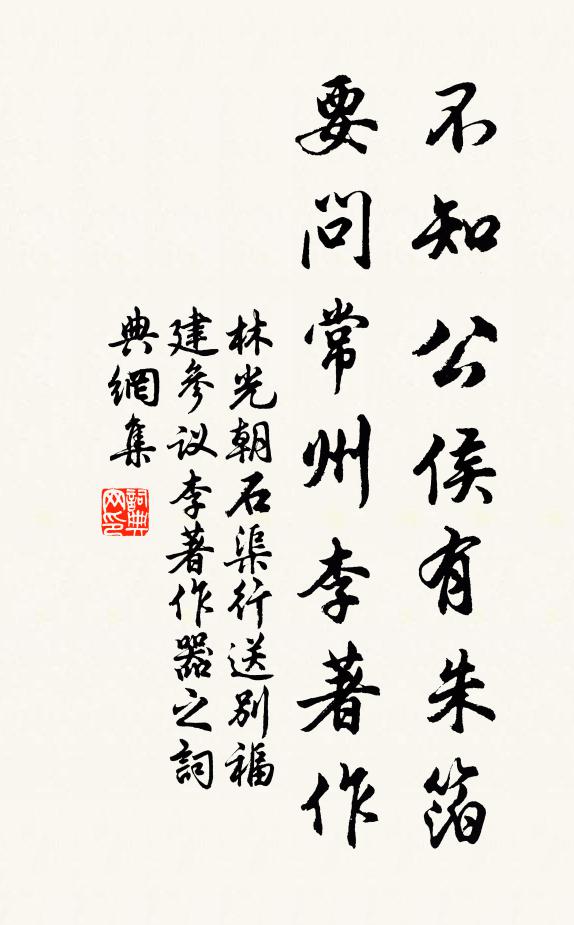 不知公侯有朱箔
要问常州李著作
林光朝石渠行送别福
建参议李著作器之詞
典網集
詞典网印